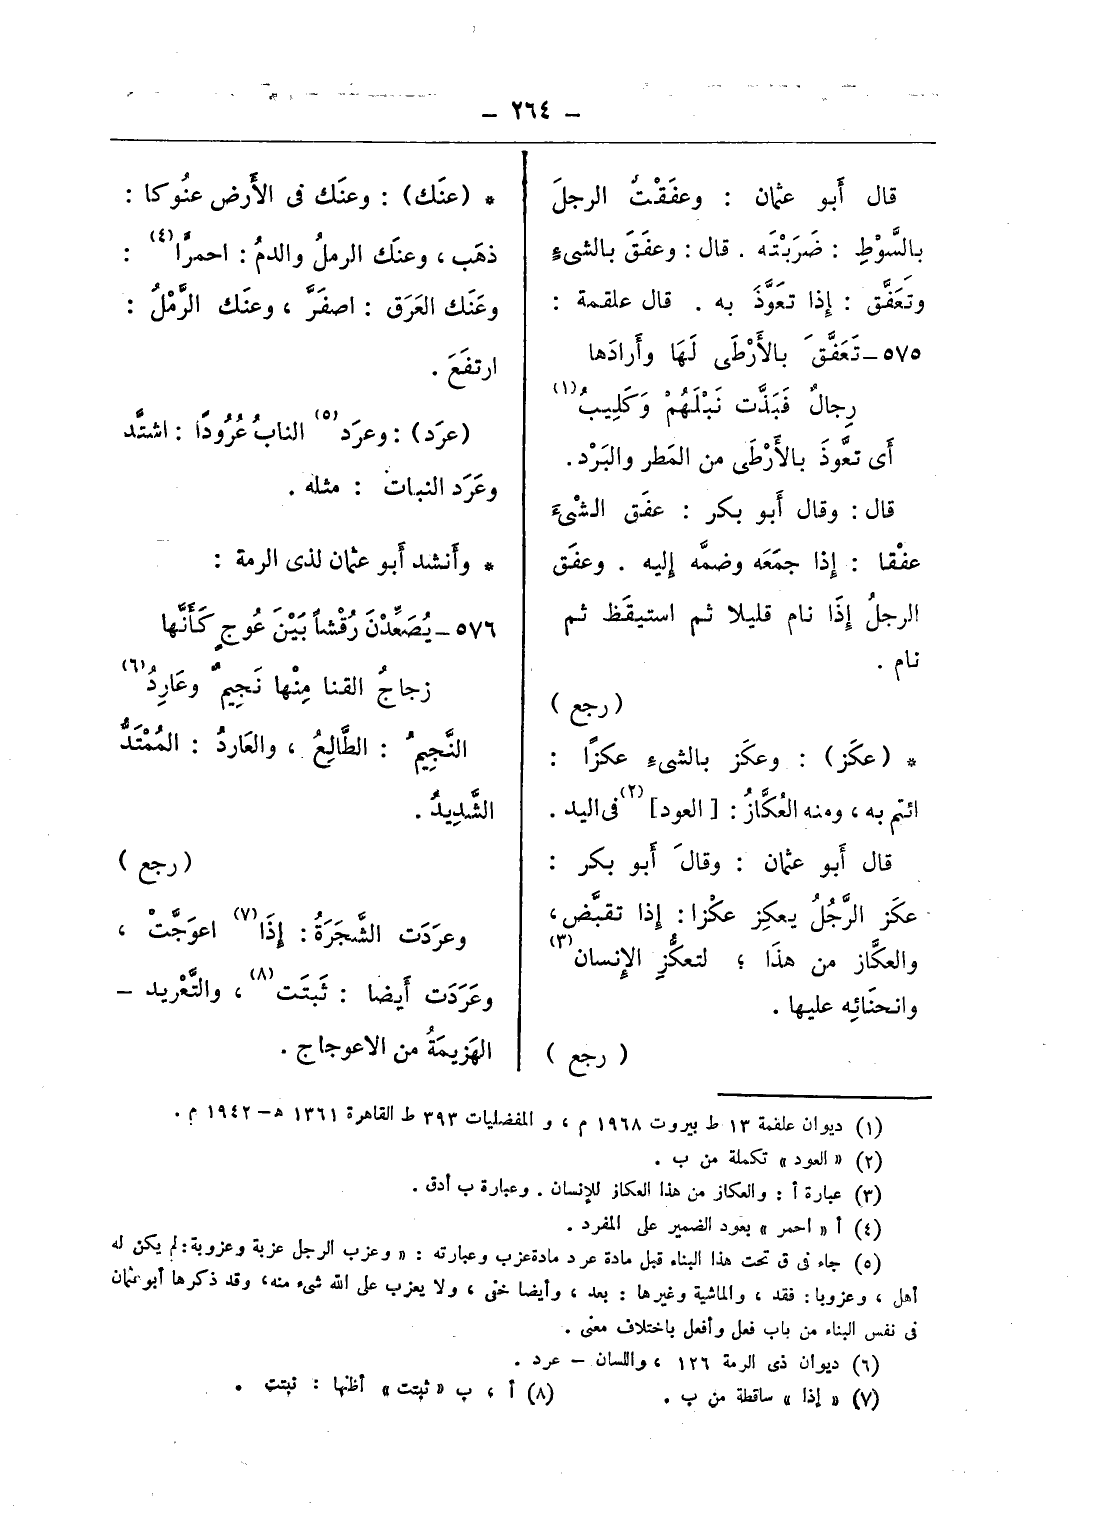 – ٢٦٤ –
قال أَبو عثمان : وعفَقْتُ الرجلَ
بالسَّوْطِ : ضَرَبْتَه . قال : وعفَقَ بالشىءِ
وتَعَفَّق : إِذا تَعَوَّذَ به . قال علقمة :
٥٧٥– تَعَفَّقَ بالأَرْطَى لَهَا وأَرادَها
رِجالٌ فَبَذَّت نَبْلَهُمْ وَكَلِيبُ(١)
أَى تعَّوذَ بالأَرْطَى من المَطر والبَرْد.
قال : وقال أَبو بكر : عفَق الشىْءَ
عفْقا : إِذا جمَعَه وضمَّه إِليه . وعفَق
الرجلُ إِذَا نام قليلا ثم استيقَظ ثم
نام .
( رجع )
* ( عكَز ) : وعكَز بالشىءِ عكزًا :
ائتم به ، ومنه العُكَّازُ : [ العود ](٢) فى اليد .
قال أَبو عثمان : وقالَ أَبو بكر :
عكَز الرَّجُلُ يعكِز عكْزا : إِذا تقبَّض ،
والعكَّاز من هذَا ؛ لتعكُّزِ الإِنسان(٣)
وانحنَائِه عليها .
( رجع )
* ( عنَك ) : وعنَك فى الأَرض عنُوكا :
ذهَب ، وعنَك الرملُ والدمُ : احمرَّا(٤) :
وعَنَك العَرَق : اصفَرَّ ، وعنَك الرَّمْلُ :
ارتفَعَ .
( عرَد ) : وعرَد(٥) النابُ عُرُودًا : اشتَّد
وعَرَد النباتُ : مثله .
* وأَنشد أَبو عثمان لذى الرمة :
٥٧٦– يُصَعِّدْنَ رُقْشاً بَيْنَ عُوجٍ كَأَنَّها
زجاجُ القنا مِنْها نَجِيمٌ وعَارِدُ(٦)
النَّجِيمُ : الطَّالِعُ ، والعَاردُ : المُمْتَدُّ
الشَّدِيدُ .
( رجع )
وعرَدَت الشَّجَرَةُ : إِذَا(٧) اعوَجَّتْ ،
وعَرَدَت أَيضا : ثَبتَت(٨) ، والتَّعْريد –
الهَزِيمَةُ من الاعوجاج .
(١) ديوان علقمة ١٣ ط بيروت ١٩٦٨ م ، و المفضليات ٣٩٣ ط القاهرة ١٣٦١ هـ – ١٩٤٢ م .
(٢) « العود » تكملة من ب .
(٣) عبارة أ : والعكاز من هذا العكاز للإنسان . وعبارة ب أدق .
(٤) أ « احمر » بعود الضمير على المفرد .
(٥) جاء فى ق تحت هذا البناء قبل مادة عرد مادة عزب وعبارته : « وعزب الرجل عزبة وعزوبة : لم يكن له
أهل ، وعزوبا : فقد ، والماشية وغيرها : بعد ، وأيضا خفى ، ولا يعزب على الله شىء منه ، وقد ذكرها أبو عثمان
فى نفس البناء من باب فعل وأفعل باختلاف معنى .
(٦) ديوان ذى الرمة ١٢٦ ، واللسان – عرد .
(٧) « إذا » ساقطة من ب . (٨) أ ، ب « ثبتت » أظنها : نبتت .